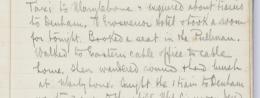 Taxi to Marylebone & inquired about trains
to Denham. To Grosvenor Hotel & took a room
for tonight. Booked a seat in the Pullman.
Walked to Eastern cable office to cable
home, then wandered round & had lunch
at Marylebone. Caught the train to Denham